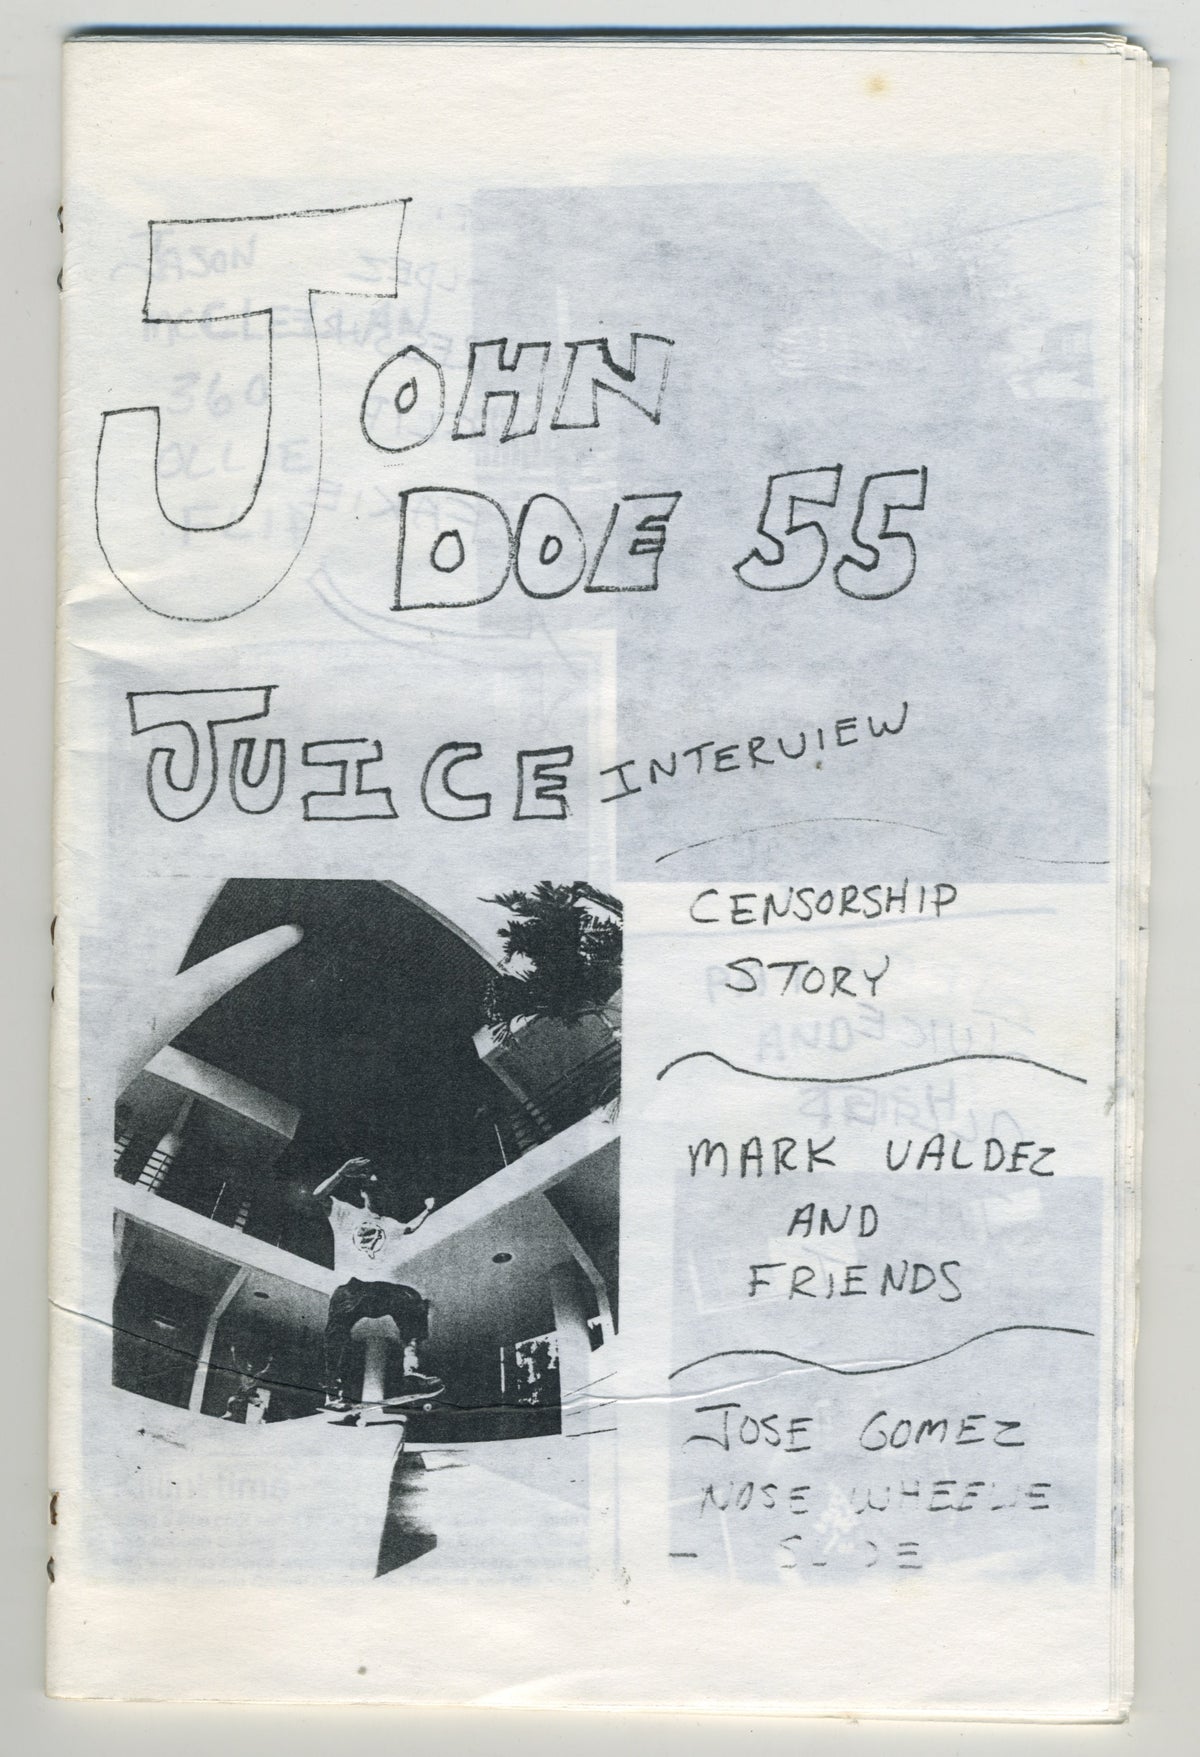 JOHN
DOE 55
JUICE INTERVIEW
CENSORSHIP
STORY
MARK VALDEZ
AND
FRIENDS
JOSE GOMEZ
NOSE WHEELIE
- SLIDE